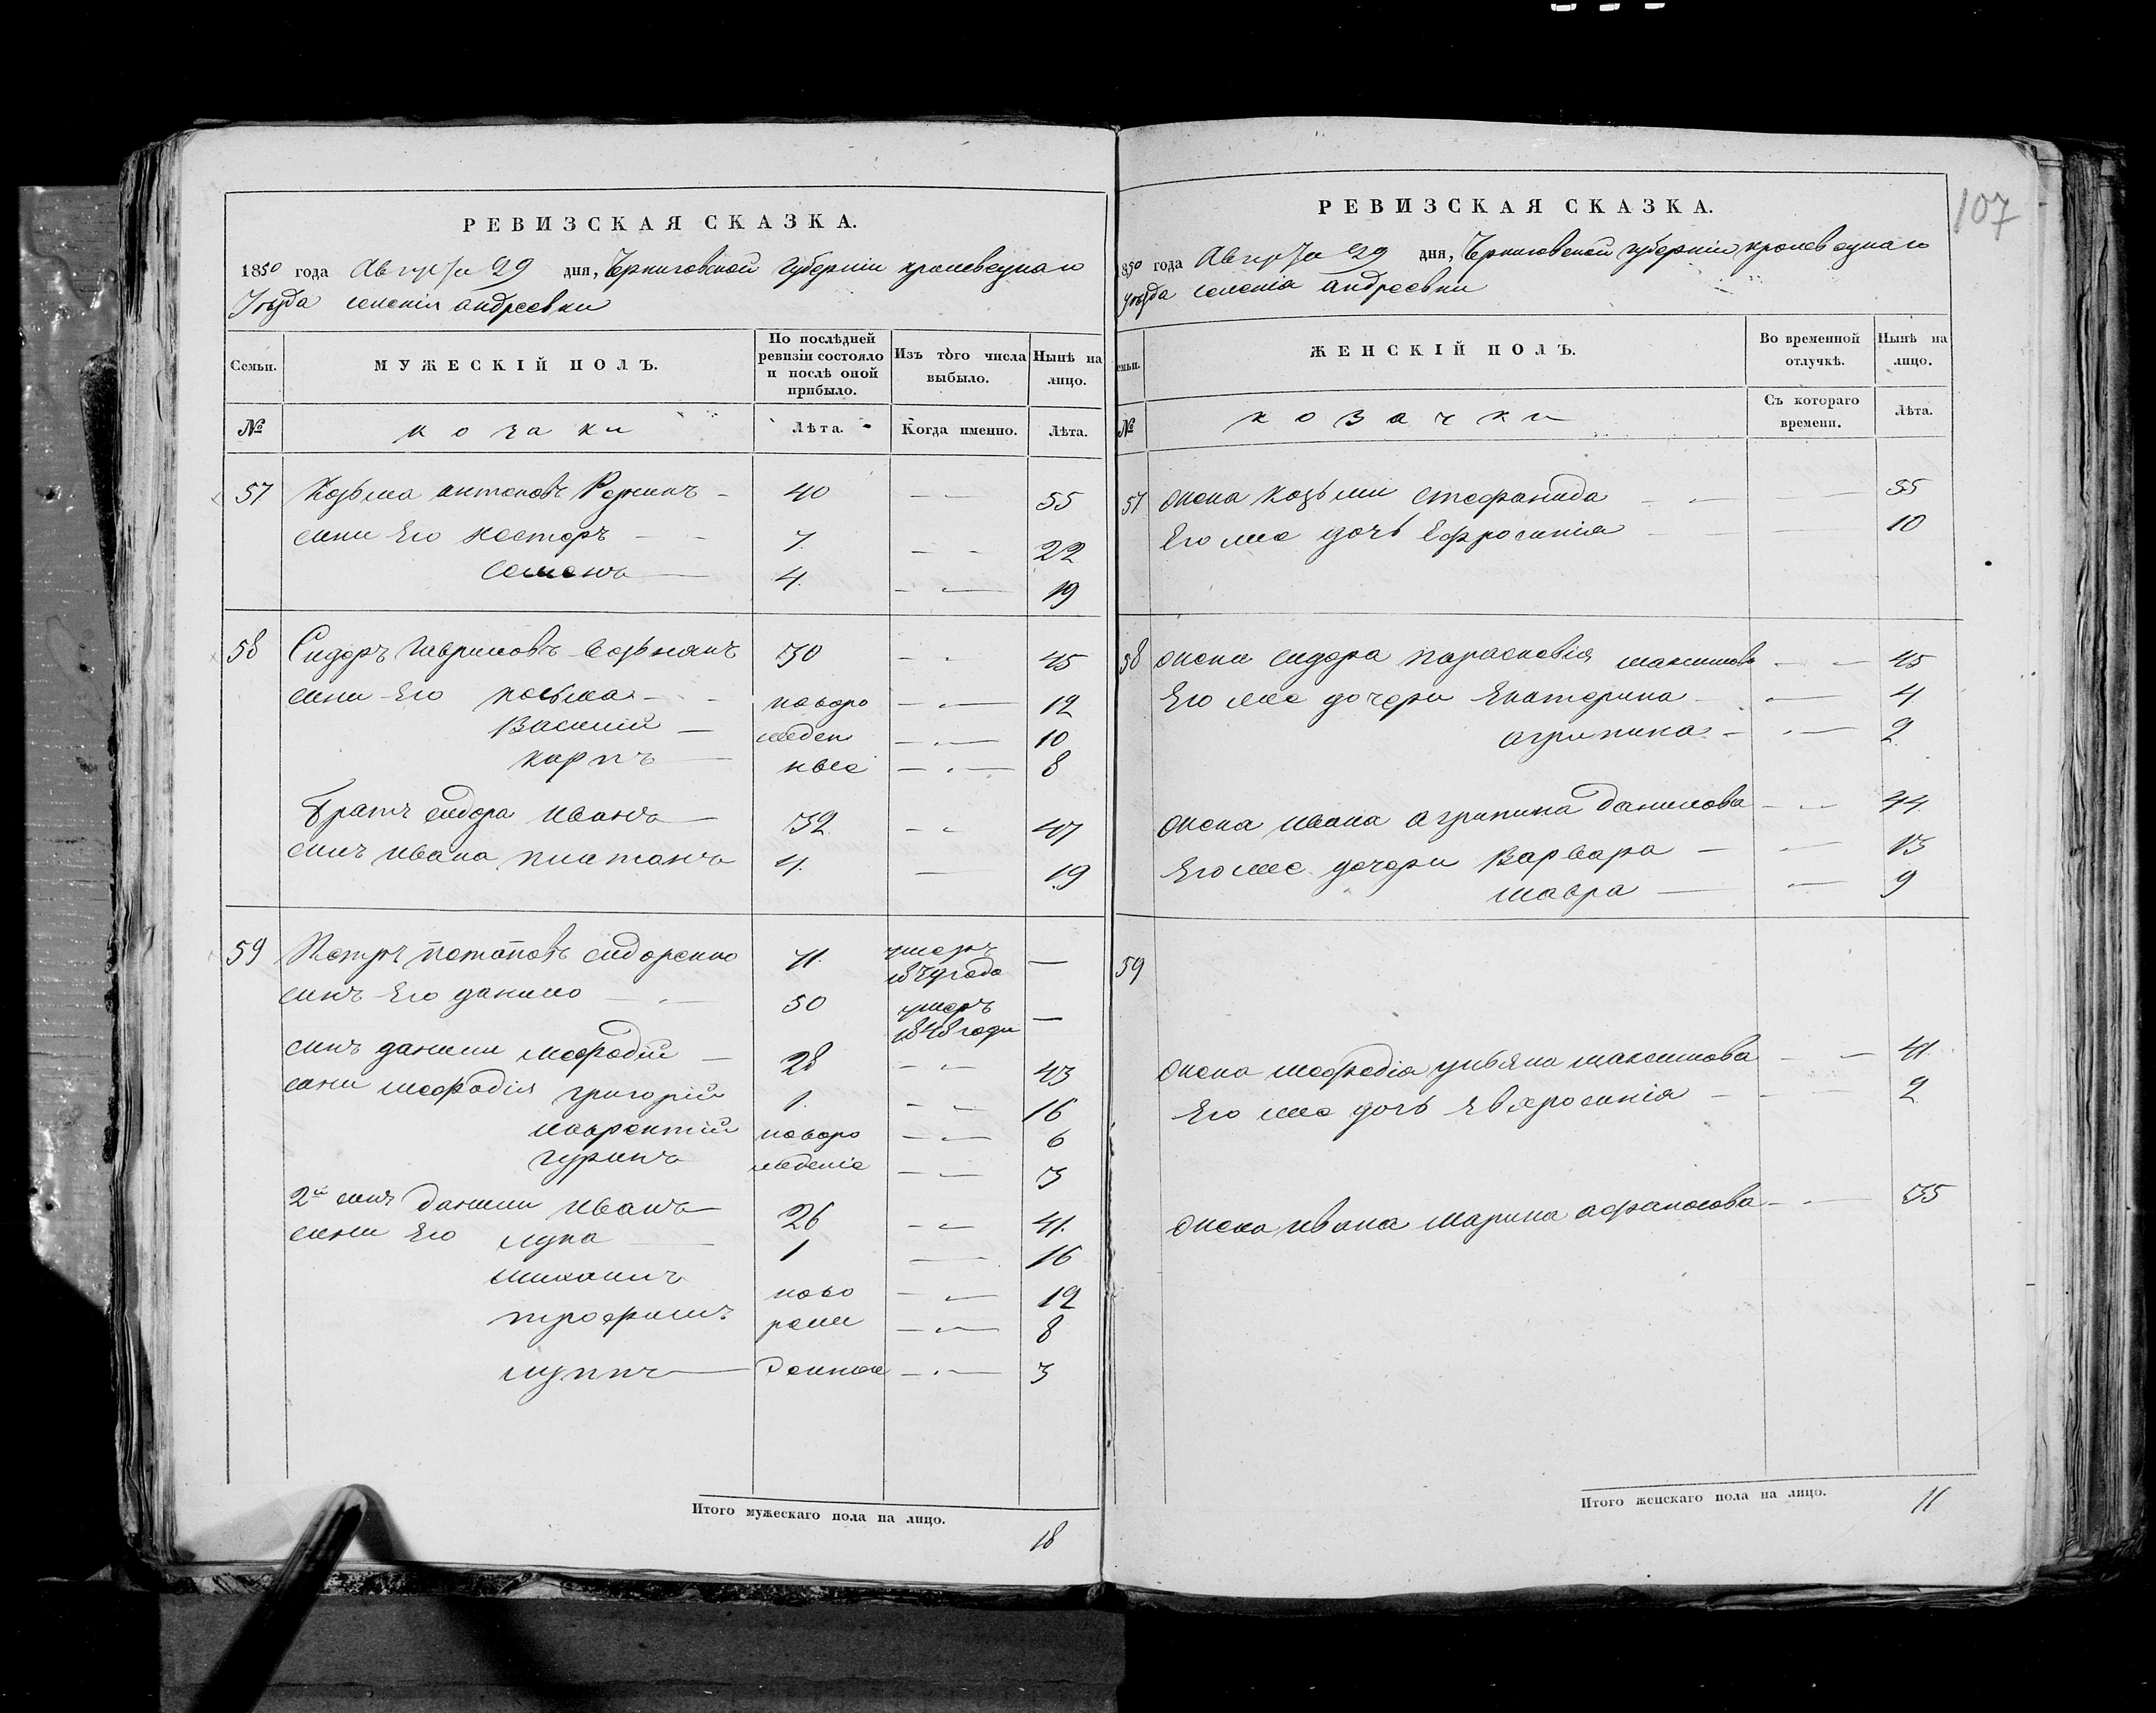 РЕВИЗСКАЯ СКАЗКА.
1850 года Августа 29 дня, Черниговской губерніи кролевецкаго
Уѣзда селенія андреевки
Семьи. МУЖЕСКІЙ ПОЛЪ. По послѣдней ревизіи состояло и послѣ оной прибыло. Изъ того числа выбыло. Нынѣ на лицо.
№ козаки Лѣта. Когда именно. Лѣта.
57 Козьма антоновъ 40 55
сини Его несторъ 7. 22
Семенъ 4. 19
58 Сидоръ гавриловъ 30 45
сини Его козьма новоро 12
Василій жден 10
карпъ ные 8
Братъ сидора иванъ 32 47
синъ ивана платонъ 4. 19
59 Петръ потаповъ сидоренко 71. умеръ 1849 года —
синъ Его данило 50 умеръ 1848 года —
синъ данили мефодій 28 43
сини мефодія григорій 1. 16
лаврентій новоро 6
гуринъ жденіе 3
2й синъ данили иванъ 26 41.
сини Его лука 1 16
михаилъ ново 12
трофимъ рож 8
луппъ денные 3
Итого мужескаго пола на лицо.
18
107
РЕВИЗСКАЯ СКАЗКА.
1850 года Августа 29 дня, Черниговской губерніи кролевецкаго
уѣзда селенія андреевки
Семьи. ЖЕНСКІЙ ПОЛЪ. Во временной отлучкѣ. Нынѣ на лицо.
№ козачки Съ котораго времени. Лѣта.
57 жена козьми стефанида 55
Его же дочь Ефросинія 10
58 жена сидора парасковія максимова 45
Его же дочери Екатерина 4
агрипина 2
жена ивана агрипина данилова 44
Его же дочери варвара 13
мавра 9
59
жена мефедія ульяна максимова 41.
Его же дочь Евфросинія 2
жена ивана марина афанасова 35
Итого женскаго пола на лицо.
11